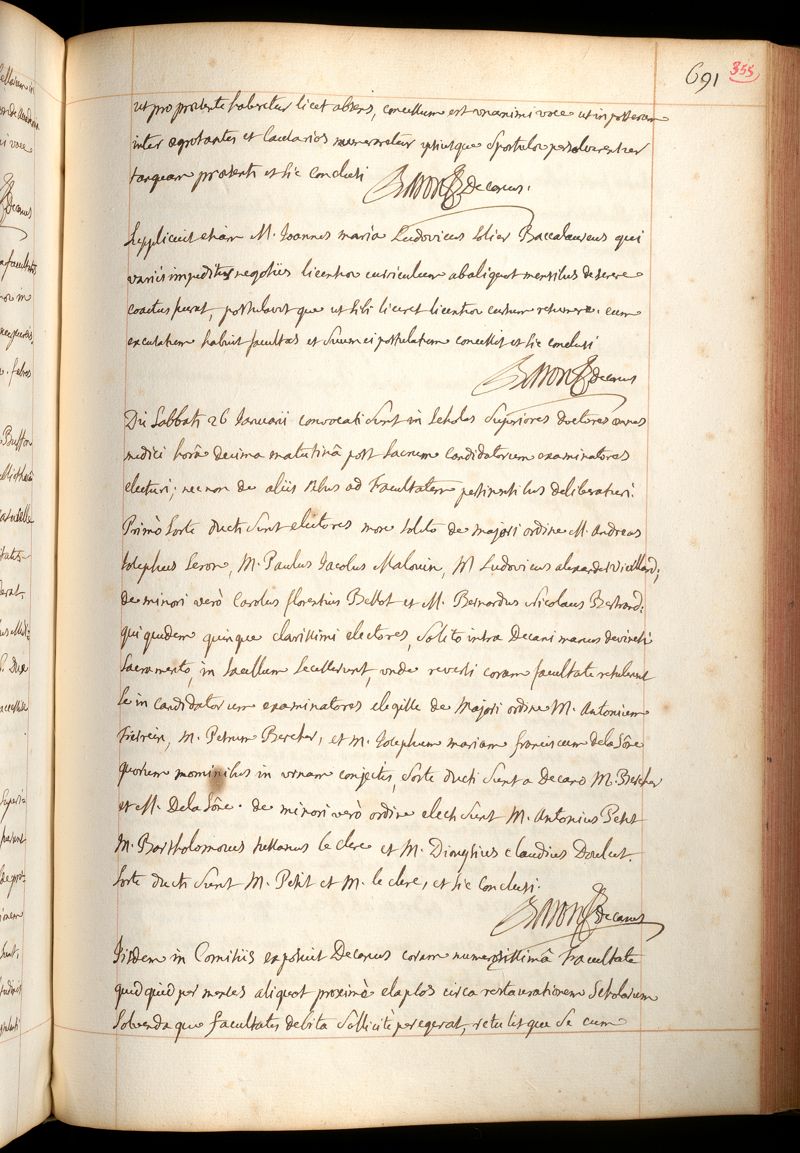 691 355
ut pro præsente haberetur licet absens, concessum est unanimi voce ut in posterum
inter ægrotantes et laudarios numeraretur ipsiusque sportulæ persolverentur
tanquam præsenti et sic conclusi Baron Decanus.
Supplicuit etiam M. Joannes maria Ludovicus Solier Baccalaureus qui
variis impeditus negotiis licentiæ curriculum ab aliquot mensibus deserere
coactus fuerat, postulavit que ut sibi liceret licentiæ cursum resumere. eum
excusatum habuit facultas et suum ei postulatum concessit et sic conclusi
Baron Decanus
Die Sabbati 26 Januarii convocati sunt in Scholas Superiores doctores omnes
medici horâ decima matutinâ post sacrum candidatorum examinatores
electuri; nec non de aliis rebus ad Facultatem pertinentibus deliberaturi.
Primò sorte ducti sunt electores more solito de majori ordine M. Andreas
Josephus Seron, M. Paulus Jacobus Malouin, M Ludovicus alexander Viellard;
de minori verò Carolus florentius Bellot et M. Bernardus Nicolaus Bertrand:
qui quidem quinque clarissimi electores, solito intra Decani manus devincti
Sacramento, in Sacellum Secesserunt, unde reversi coram facultate retulerunt
se in candidatorum examinatores elegisse de Majori ordine M. Antonium
M. Petrum Bercher, et M. Josephum mariam franciscum de la Sône
quorum nominibus in urnam conjectis, sorte ducti sunt a Decano M. Bercher
et M. De la Sône. de minori verò ordine electi sunt M. Antonius Petit
M. Bartholomæus tussanus le clerc et M. Dionysius claudius Doulcet.
Sorte ducti sunt M. Petit et M. le clerc, et sic conclusi.
Baron decanus
Iisdem in Comitiis exposuit Decanus coram numerosissimâ Facultate
quid quid per menses aliquot proximè elapsos circa restaurationem Scholarum
Solvenda que facultatis debita sollicitè peregerat, retulit que se cum